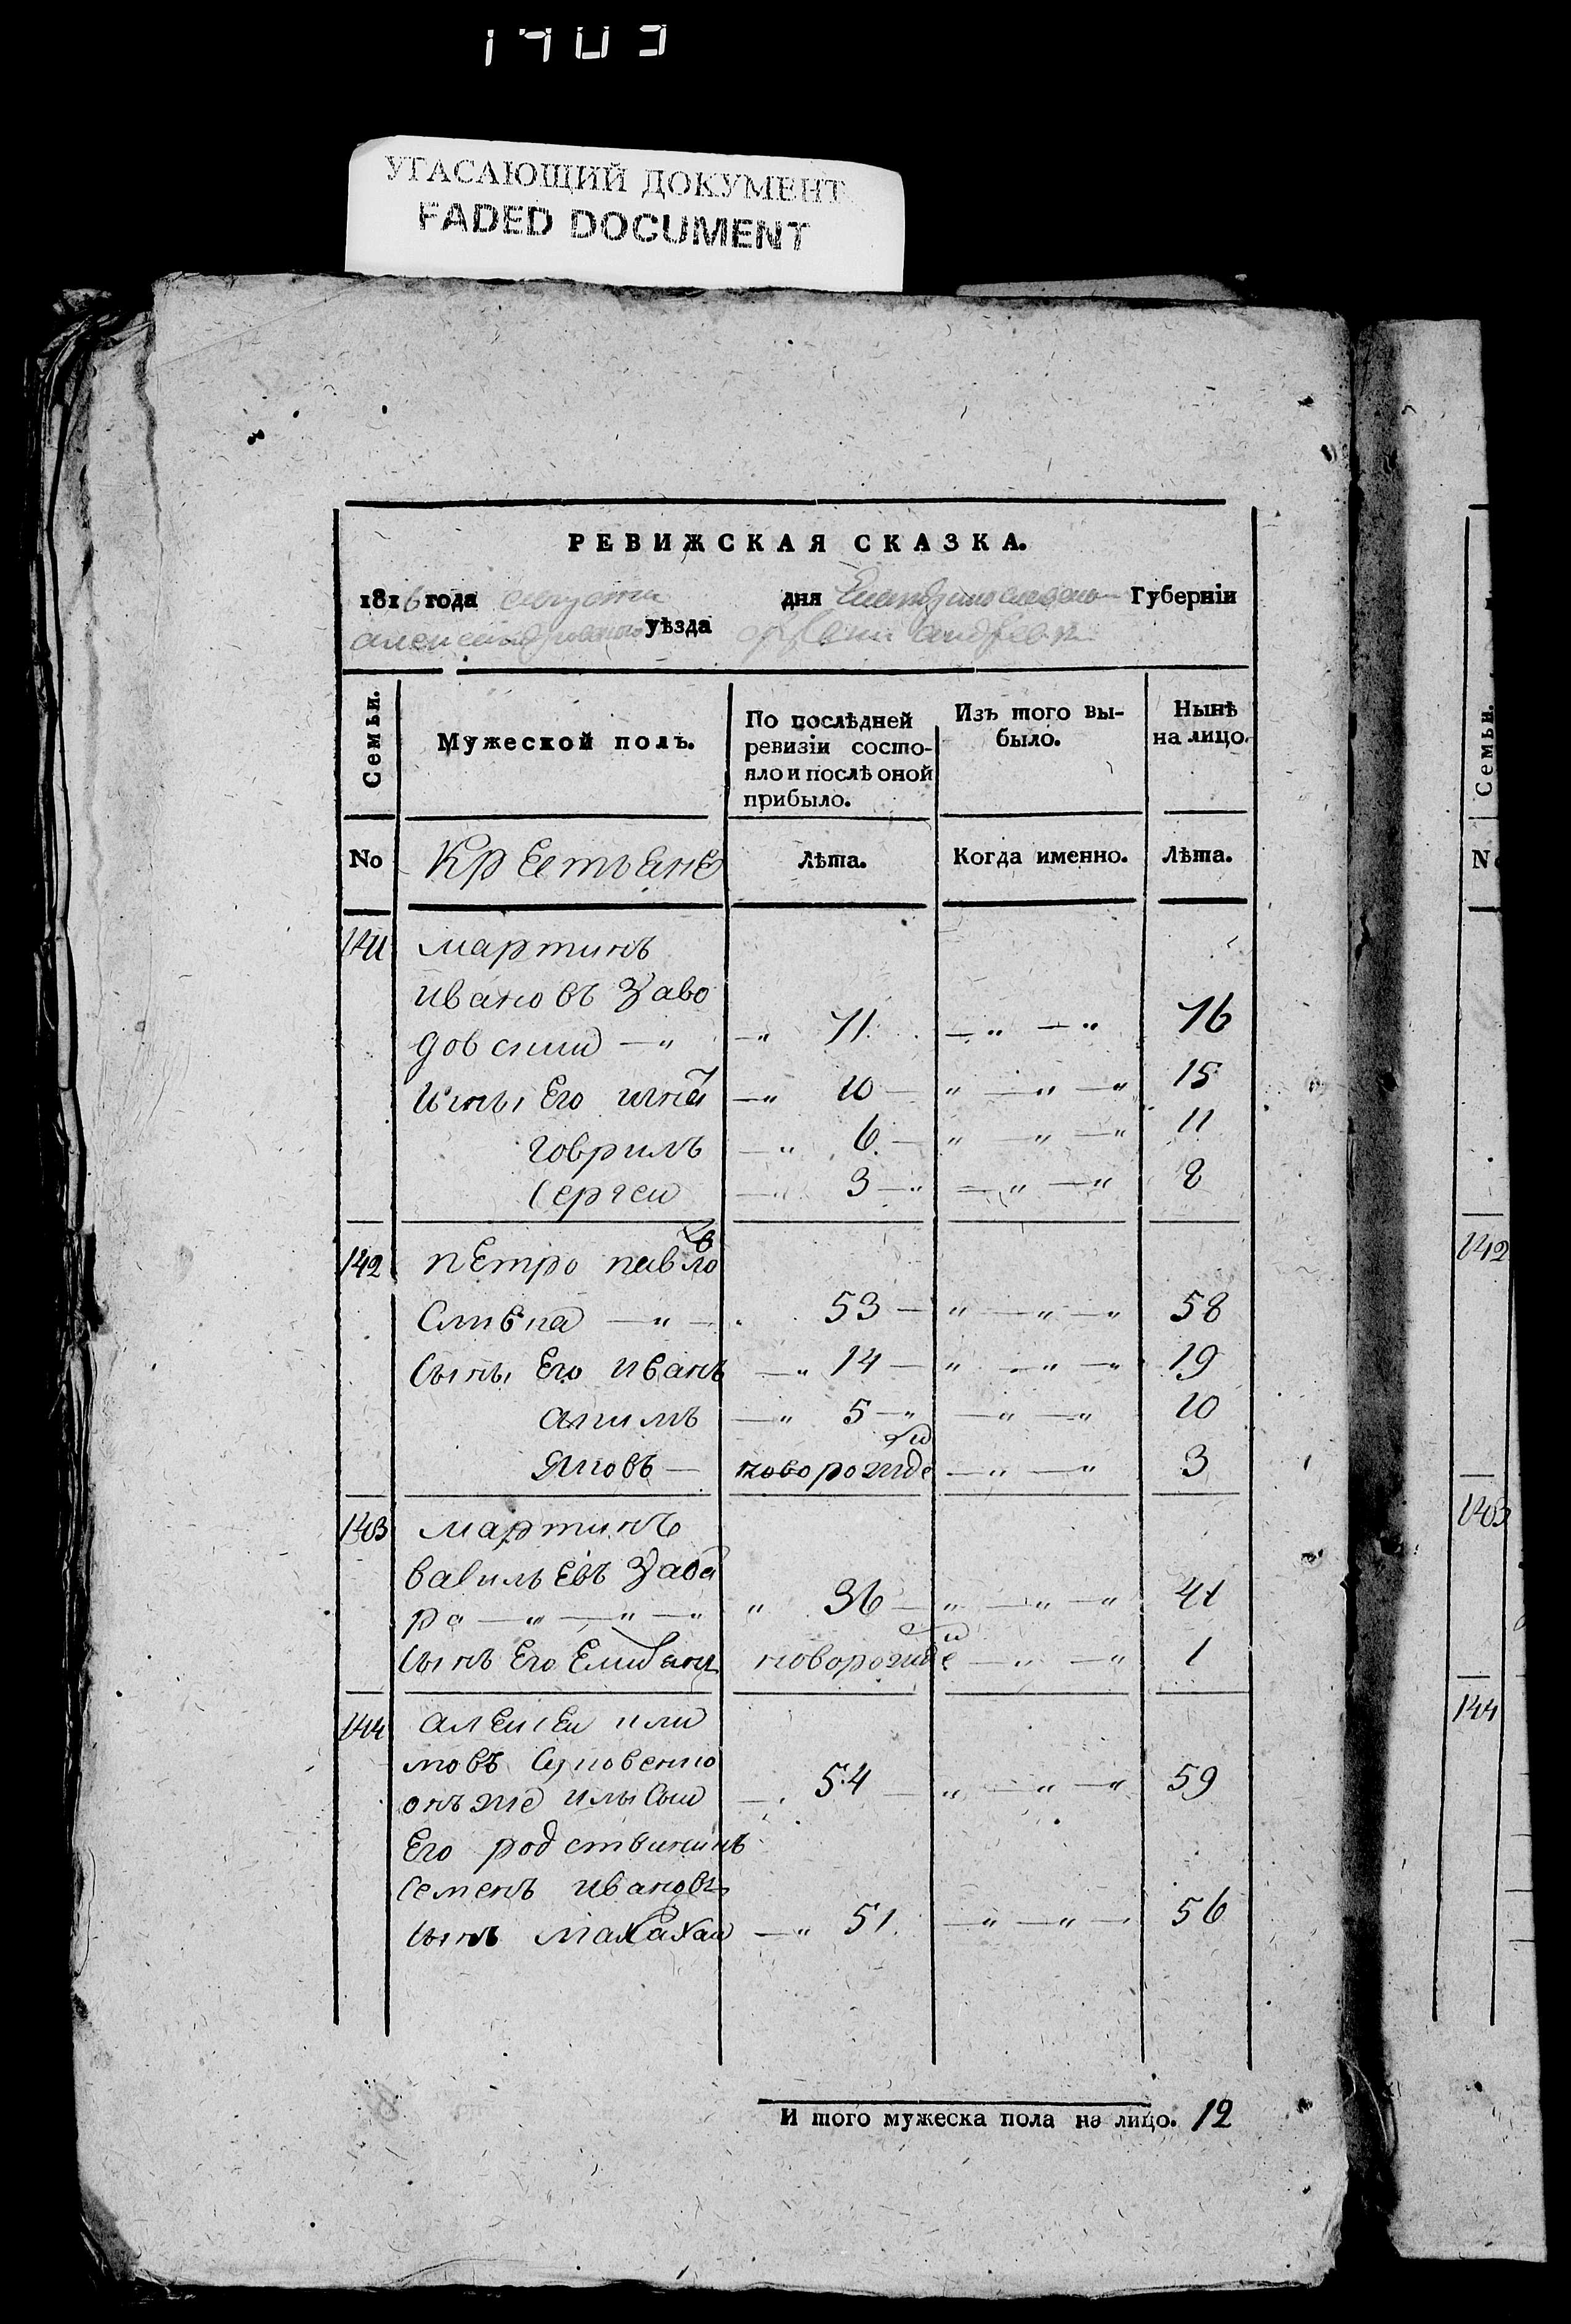 1703
УГАСАЮЩИЙ ДОКУМЕНТ
FADED DOCUMENT
РЕВИЖСКАЯ СКАЗКА.
1816 года августа дня Екатеринославской Губерніи
александрийского уѣзда
Семьи. Мужеской полъ. По послѣдней ревизіи состо-яло и послѣ оной прибыло. Изъ того вы-было. Нынѣ на лицо.
No Крестьяне Лѣта. Когда именно. Лѣта.
141 мартинъ
ивановъ Заво
довский 71 76
сыны Его игнат 10 15
говрилъ 6 11
Сергеи 3 8
142 пЕтро павлов
Сливка 53 58
Сыны Его иванъ 14 19
акимъ 5 10
Яковъ новорожде 3
143 мартинъ
васильЕвъ
ра 36 41
Сынъ Его новорожде 1
144 алЕксЕи кли
мовъ
онъже 54 59
Его родствинникъ
Семенъ ивановъ
сынъ 51 56
И того мужеска пола на лицо. 12
Семьи.
No
142
143
144